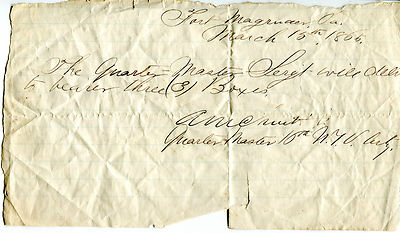 Fort Magruder, Va.
March 15th, 1865.
The Quarter Master Sergt will deli
to bearer three (3) Boxes
Quarter Master 16th N.Y.V. Arty.